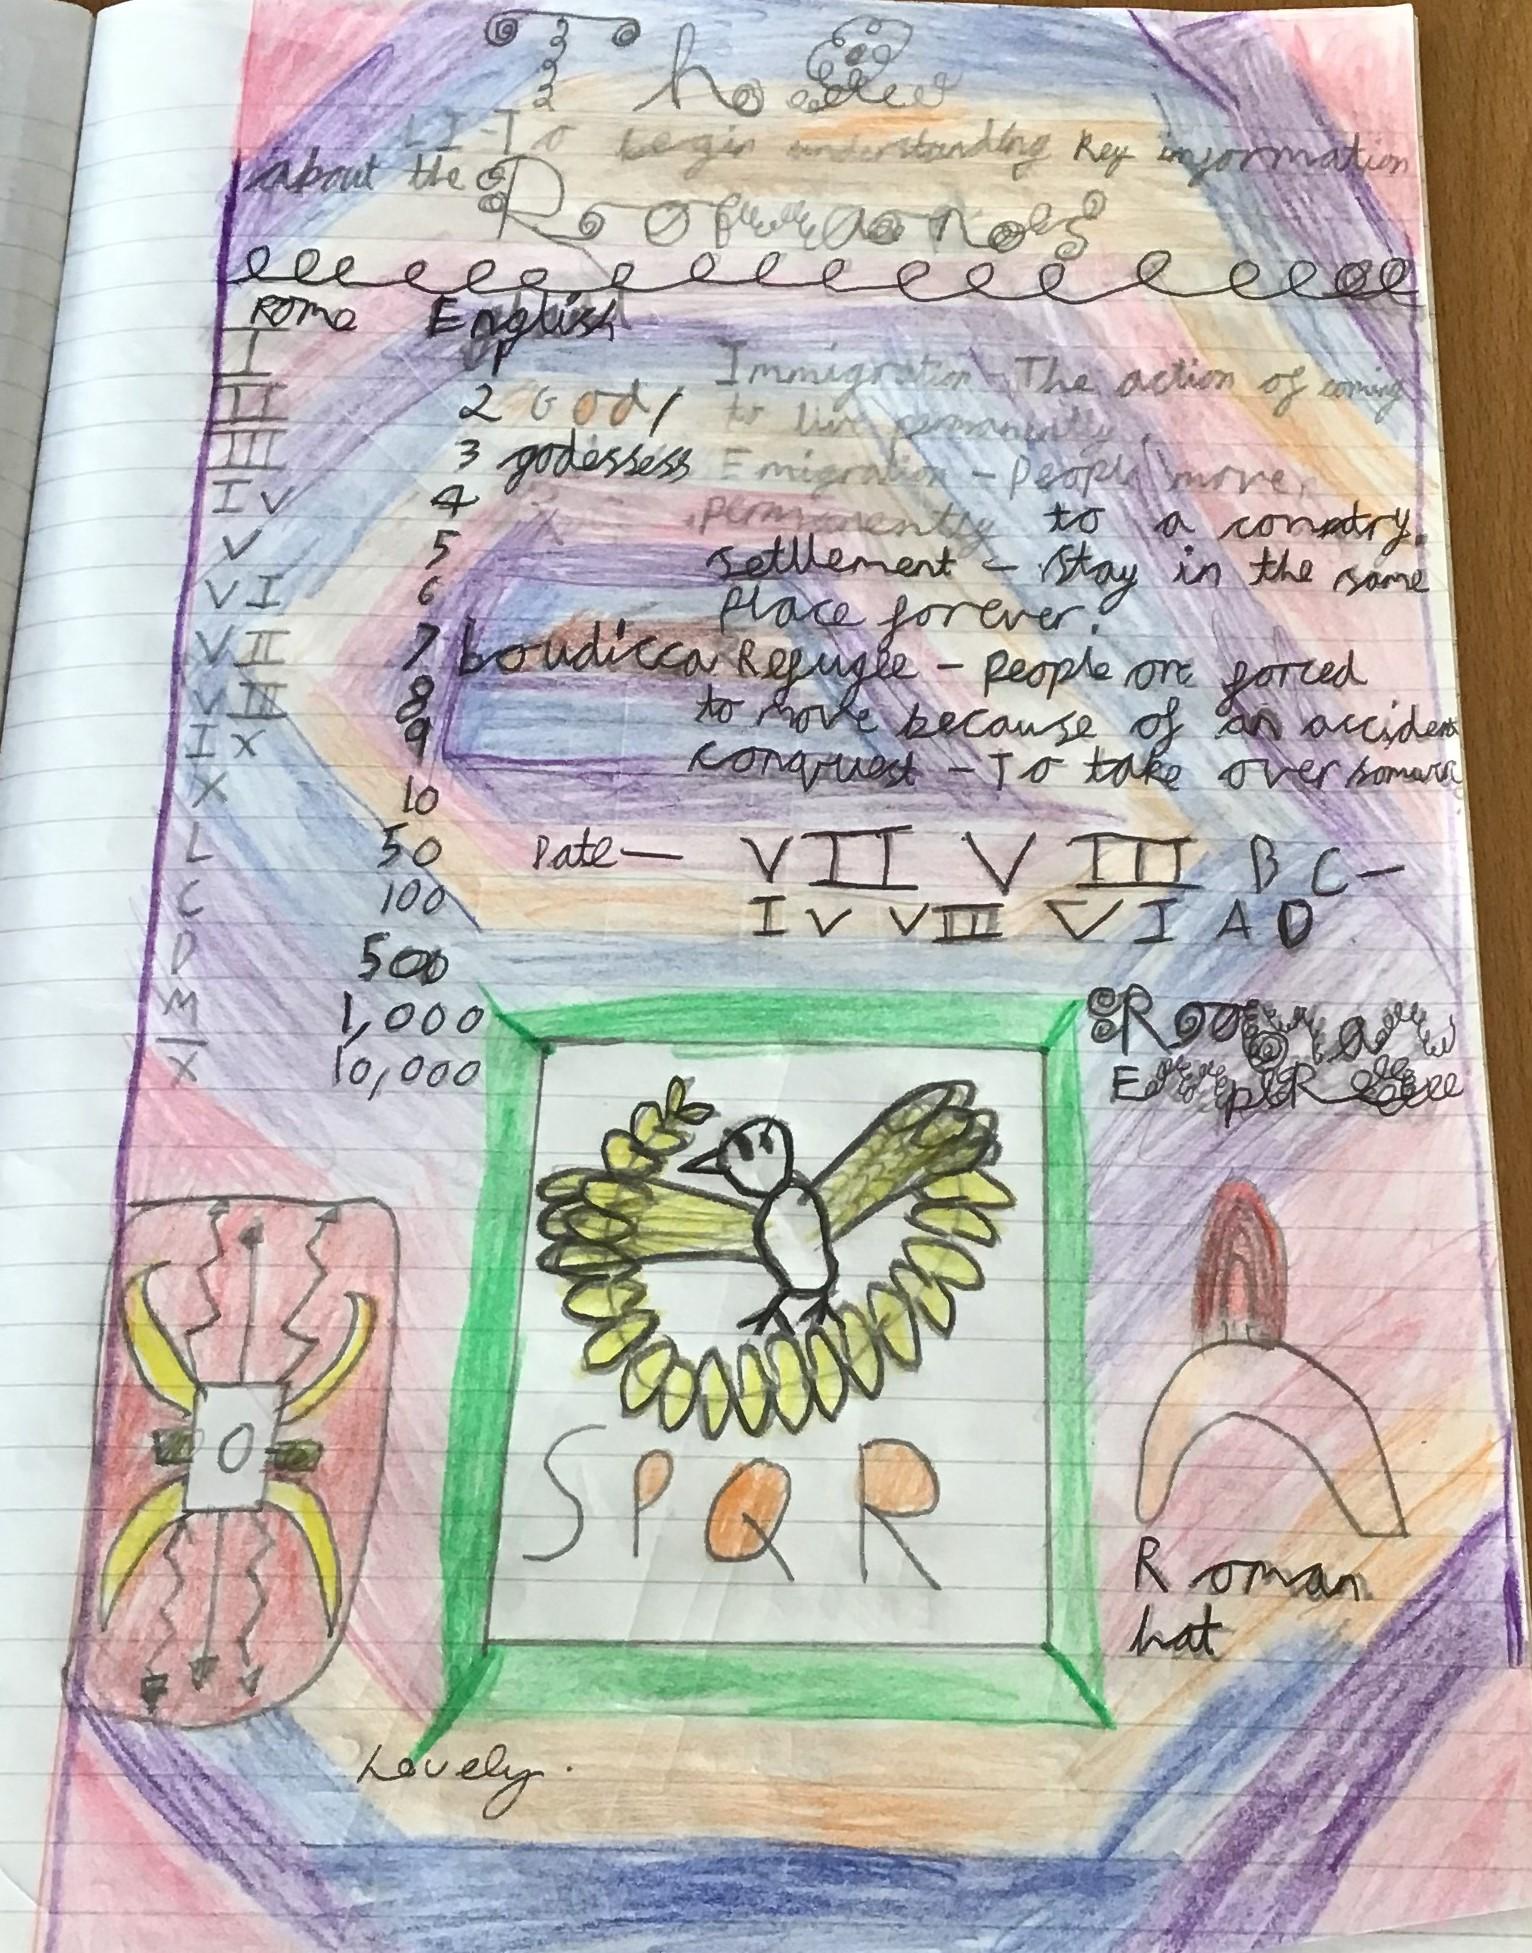 The
LI-To begin understanding key information
about the
Romans
Rome English
I 1
II 2 God/
III 3 godessess
IV 4
V 5
VI 6
VII 7 boudicca
VIII 8
IX 9
X 10
L 50
C 100
D 500
M 1,000
X̅ 10,000
Immigration - The action of coming
to live permanently.
Emigration - People move
permanently to a country.
settlement - stay in the same
place forever.
Refugee - people are forced
to move because of an accident
conquest - To take over
Date — VII V III BC —
IV VIII VI AD
Roman
EmpIRe
O
SPQR
Roman
hat
Lovely.